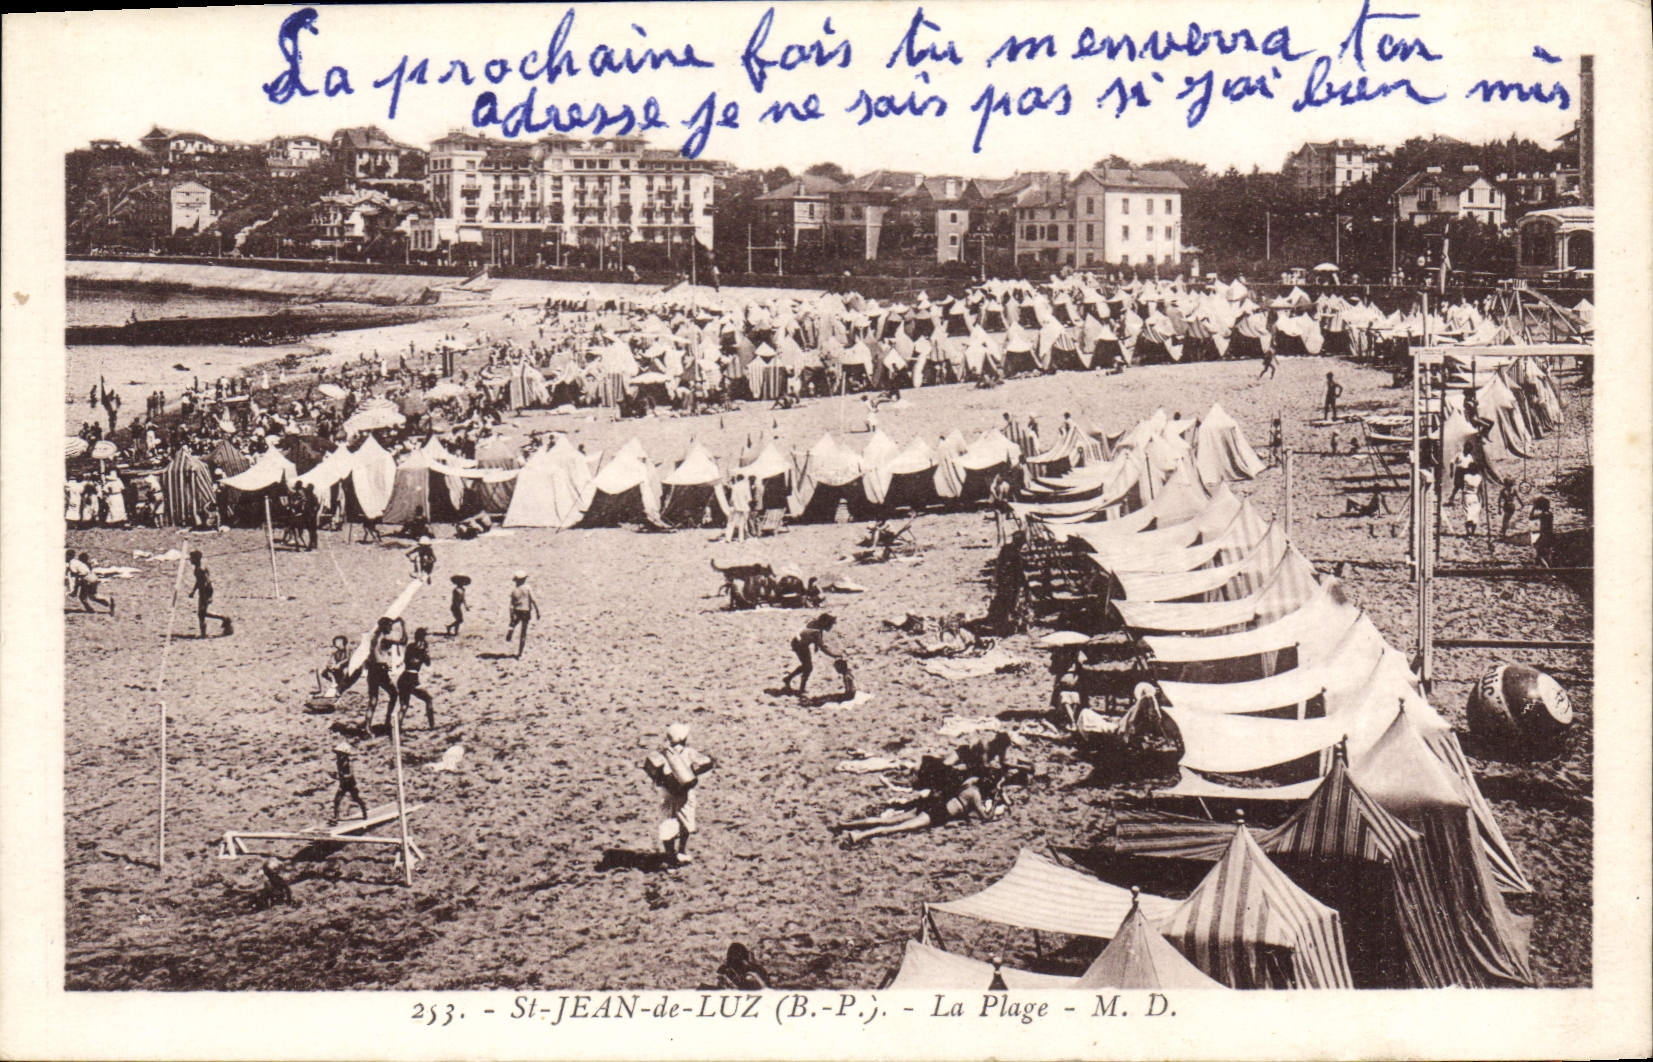 La prochaine fois tu menverra ton
adresse je ne sais pas si j'ai bien mis
253. - St-JEAN-de-LUZ (B.-P.). - La Plage - M. D.